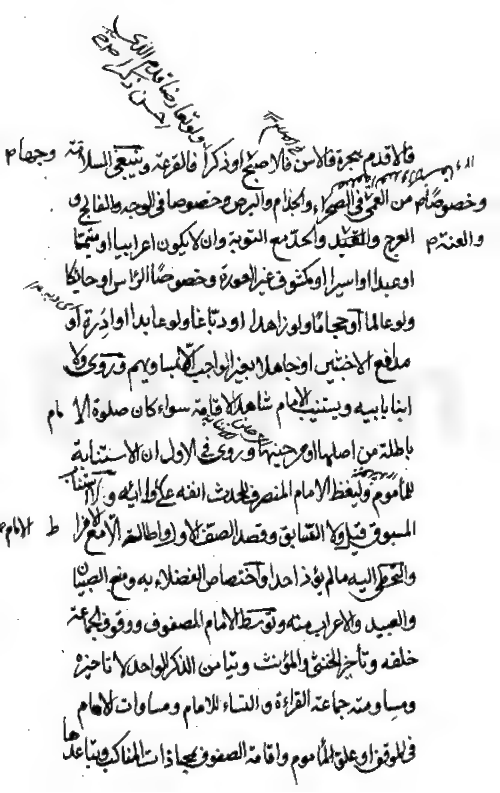 ولو تعارضا قدم الذي
احسن ذكرا
فالاقدم هجرة فالاسن فالاصبح او ذكرا فالقرعة وينبغي السلامة وجها
وخصوصا من العمى في الصحراء والجذام والبرص وخصوصا في الوجه والفالج و
العرج والقيد والحد مع التوبة وان لا يكون اعرابيا او متيمما والعنة
او عبدا او اسيرا او مكشوف غير العورة وخصوصا الراس او حائكا
ولو عالما او حجاما ولو زاهدا او دباغا ولو عابدا او ادرة او
مدافع الاخبثين او جاهلا بغير الواجب الا لمساويهم وروى ولا
ابنا بابيه ويستنيب الامام شاهد الاقامة سواء كان صلوة الامام
باطلة من اصلها او من حينها وروى في الاول ان الاستنابة
للمأموم وليغط الامام المنصرف لحدث انفه
المسبوق قيل ولا السابق وقصد الصف الاول واطالته
والتخطي اليه ما لم يؤذ احدا واختصاص الفضلاء به ومنع الصبيان
والعبيد والاعراب منه وتوسط الامام الصفوف ووقوف الجماعة
خلفه وتأخر الخنثى والمؤنث وتيامن الذكر الواحد لا تاخره
ومسامته جماعة العراة والنساء للامام ومساوات الامام
في الموقف او علو المأموم واقامة الصفوف بمحاذات المناكب وتباعدها